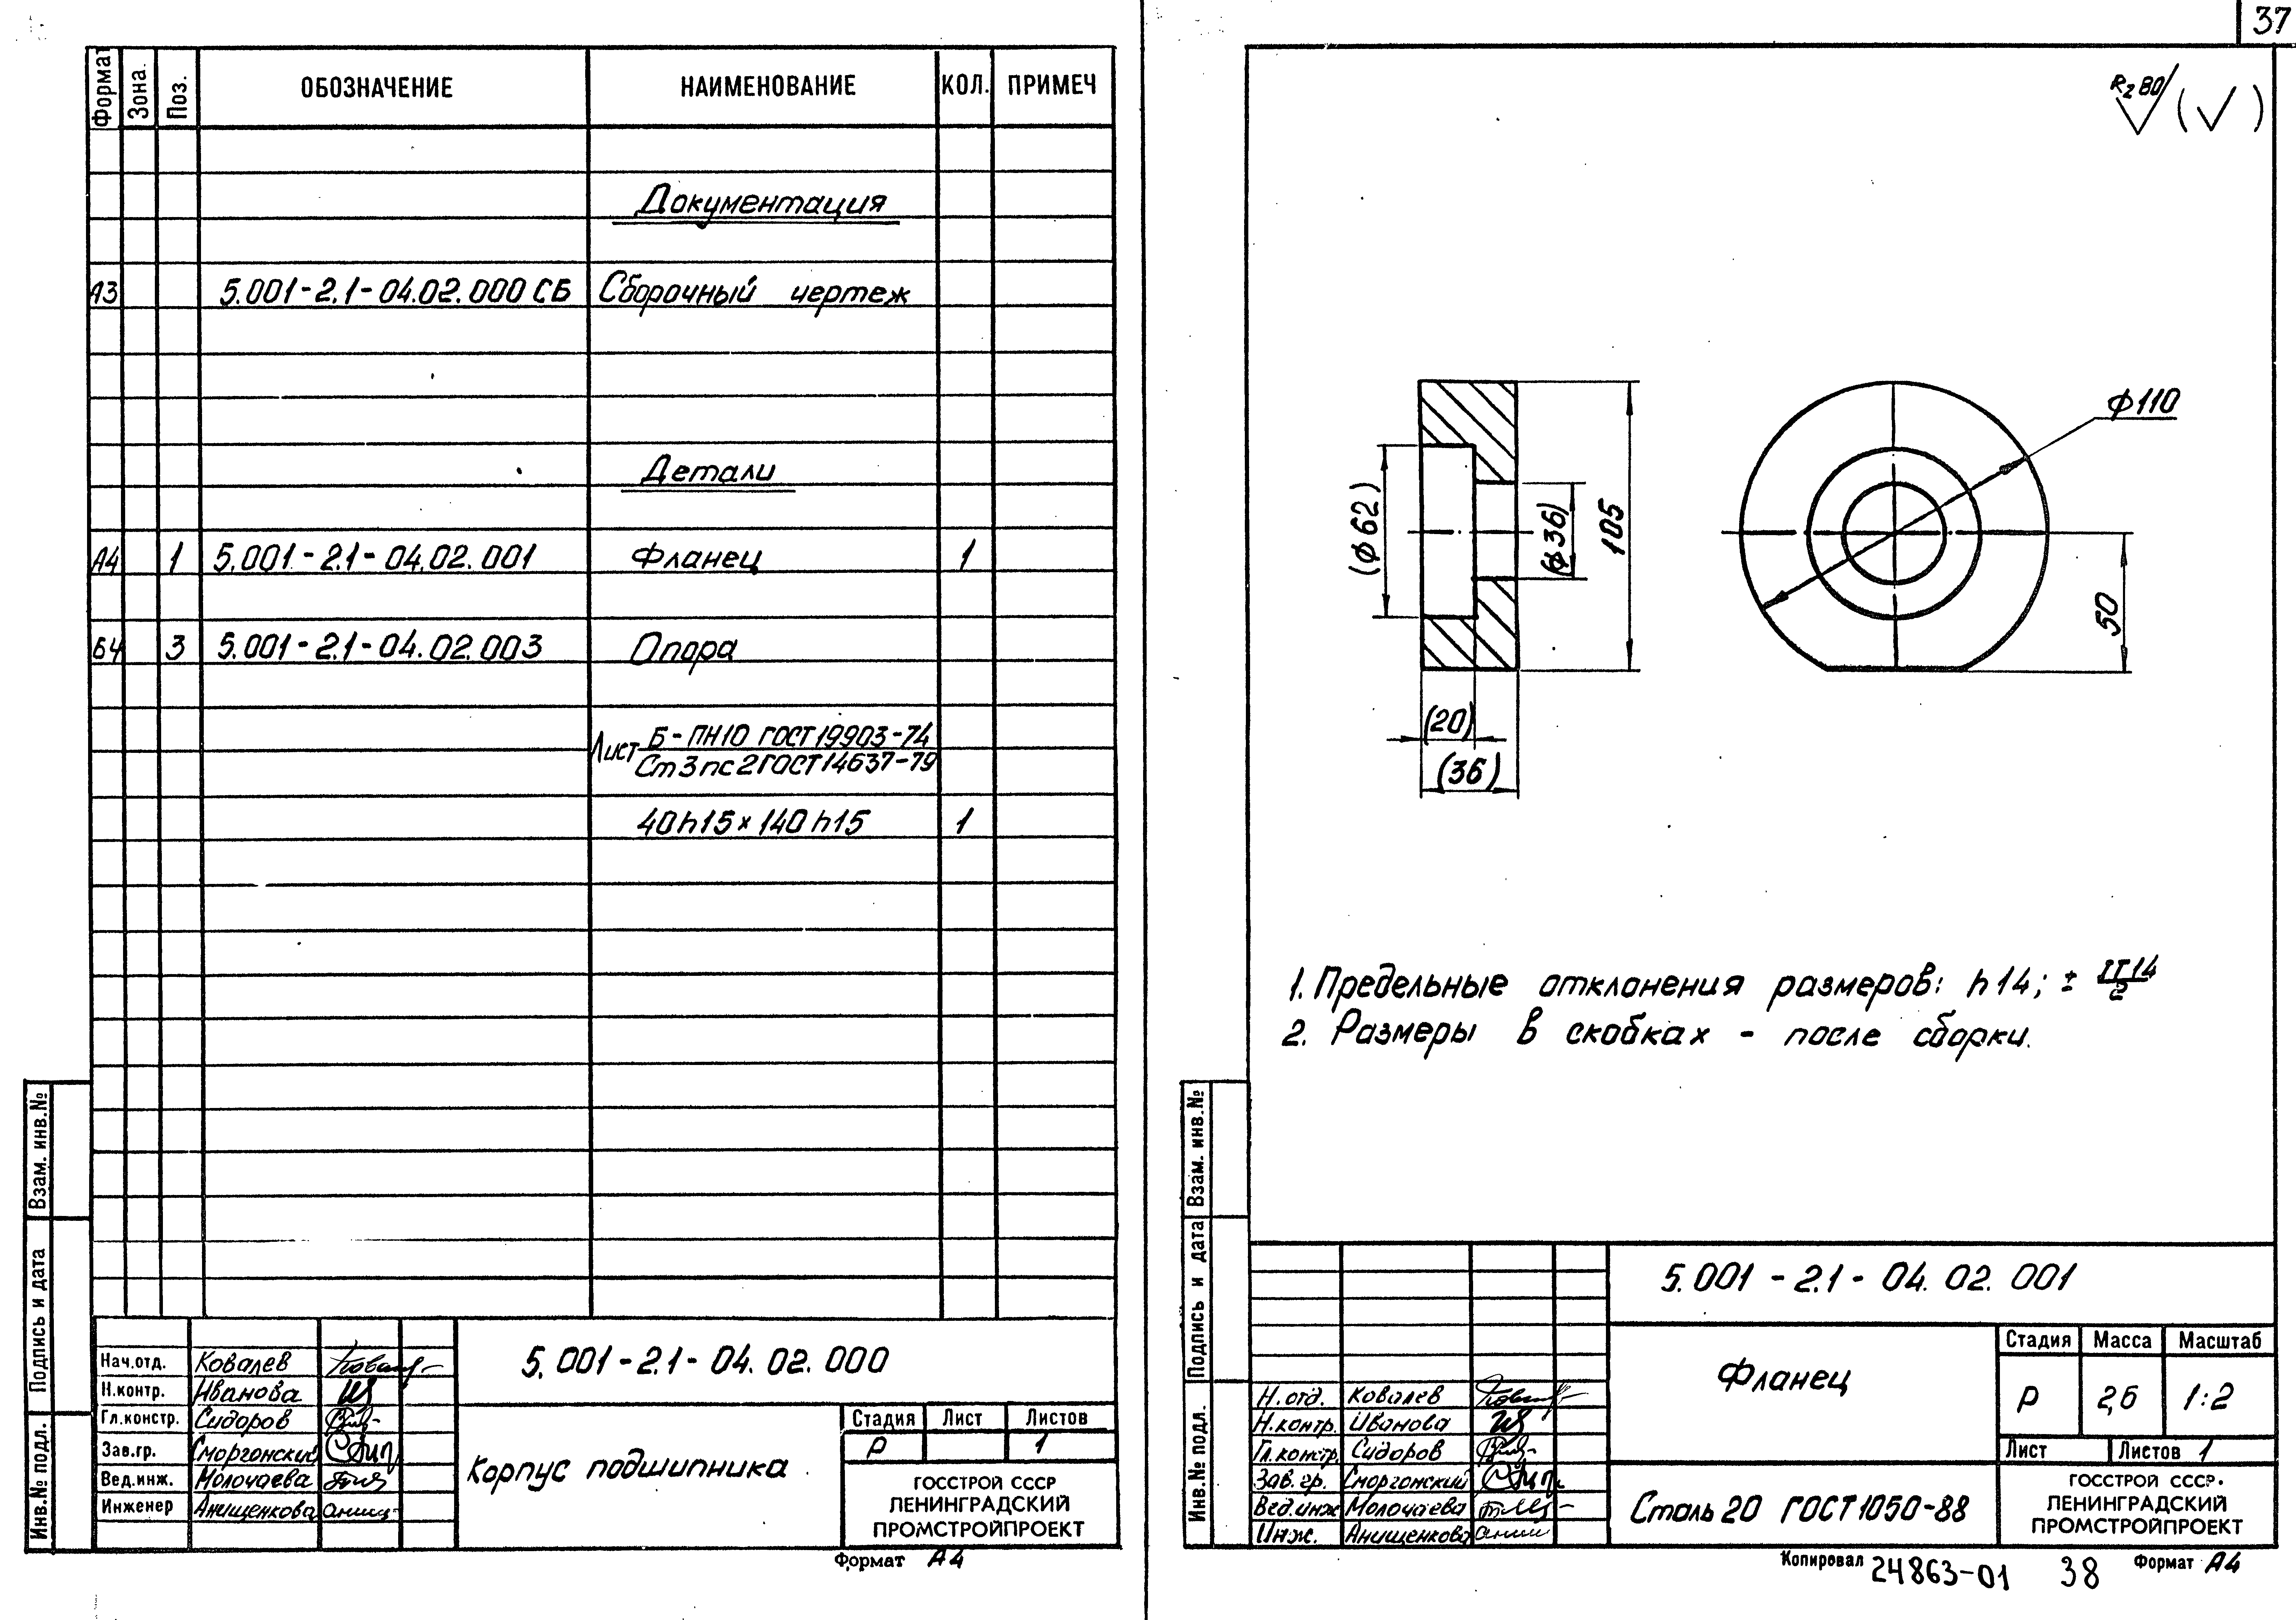 37
Формат Зона. Поз. ОБОЗНАЧЕНИЕ НАИМЕНОВАНИЕ КОЛ. ПРИМЕЧ
Документация
А3 5.001-2.1-04.02.000 СБ Сборочный чертеж
Детали
А4 1 5.001-2.1-04.02.001 Фланец 1
БЧ 3 5.001-2.1-04.02.003 Опора
Лист Б-ПН10 ГОСТ 19903-74
Ст3пс2 ГОСТ 14637-79
40h15×140h15 1
Взам. инв.№
Подпись и дата
Инв.№ подл.
5.001-2.1-04.02.000
Нач.отд. Ковалев
Н.контр. Иванова
Гл.констр. Сидоров
Зав.гр. Сморгонский
Вед.инж. Молочаева
Инженер Анищенкова
Корпус подшипника
Стадия Лист Листов
Р 1
ГОССТРОЙ СССР
ЛЕНИНГРАДСКИЙ
ПРОМСТРОЙПРОЕКТ
Формат А4
Rz 80 (√)
ф110
(ф62)
(ф36)
105
50
(20)
(36)
1. Предельные отклонения размеров: h14; ± IT14/2
2. Размеры в скобках - после сборки.
Взам. инв.№
Подпись и дата
Инв.№ подл.
5.001-2.1-04.02.001
Н.отд. Ковалев
Н.контр. Иванова
Гл.констр. Сидоров
Зав. гр. Сморгонский
Вед.инж Молочаева
Инж. Анищенкова
Фланец
Стадия Масса Масштаб
Р 2,6 1:2
Лист Листов 1
Сталь 20 ГОСТ 1050-88
ГОССТРОЙ СССР
ЛЕНИНГРАДСКИЙ
ПРОМСТРОЙПРОЕКТ
Копировал 24863-01 38 Формат А4